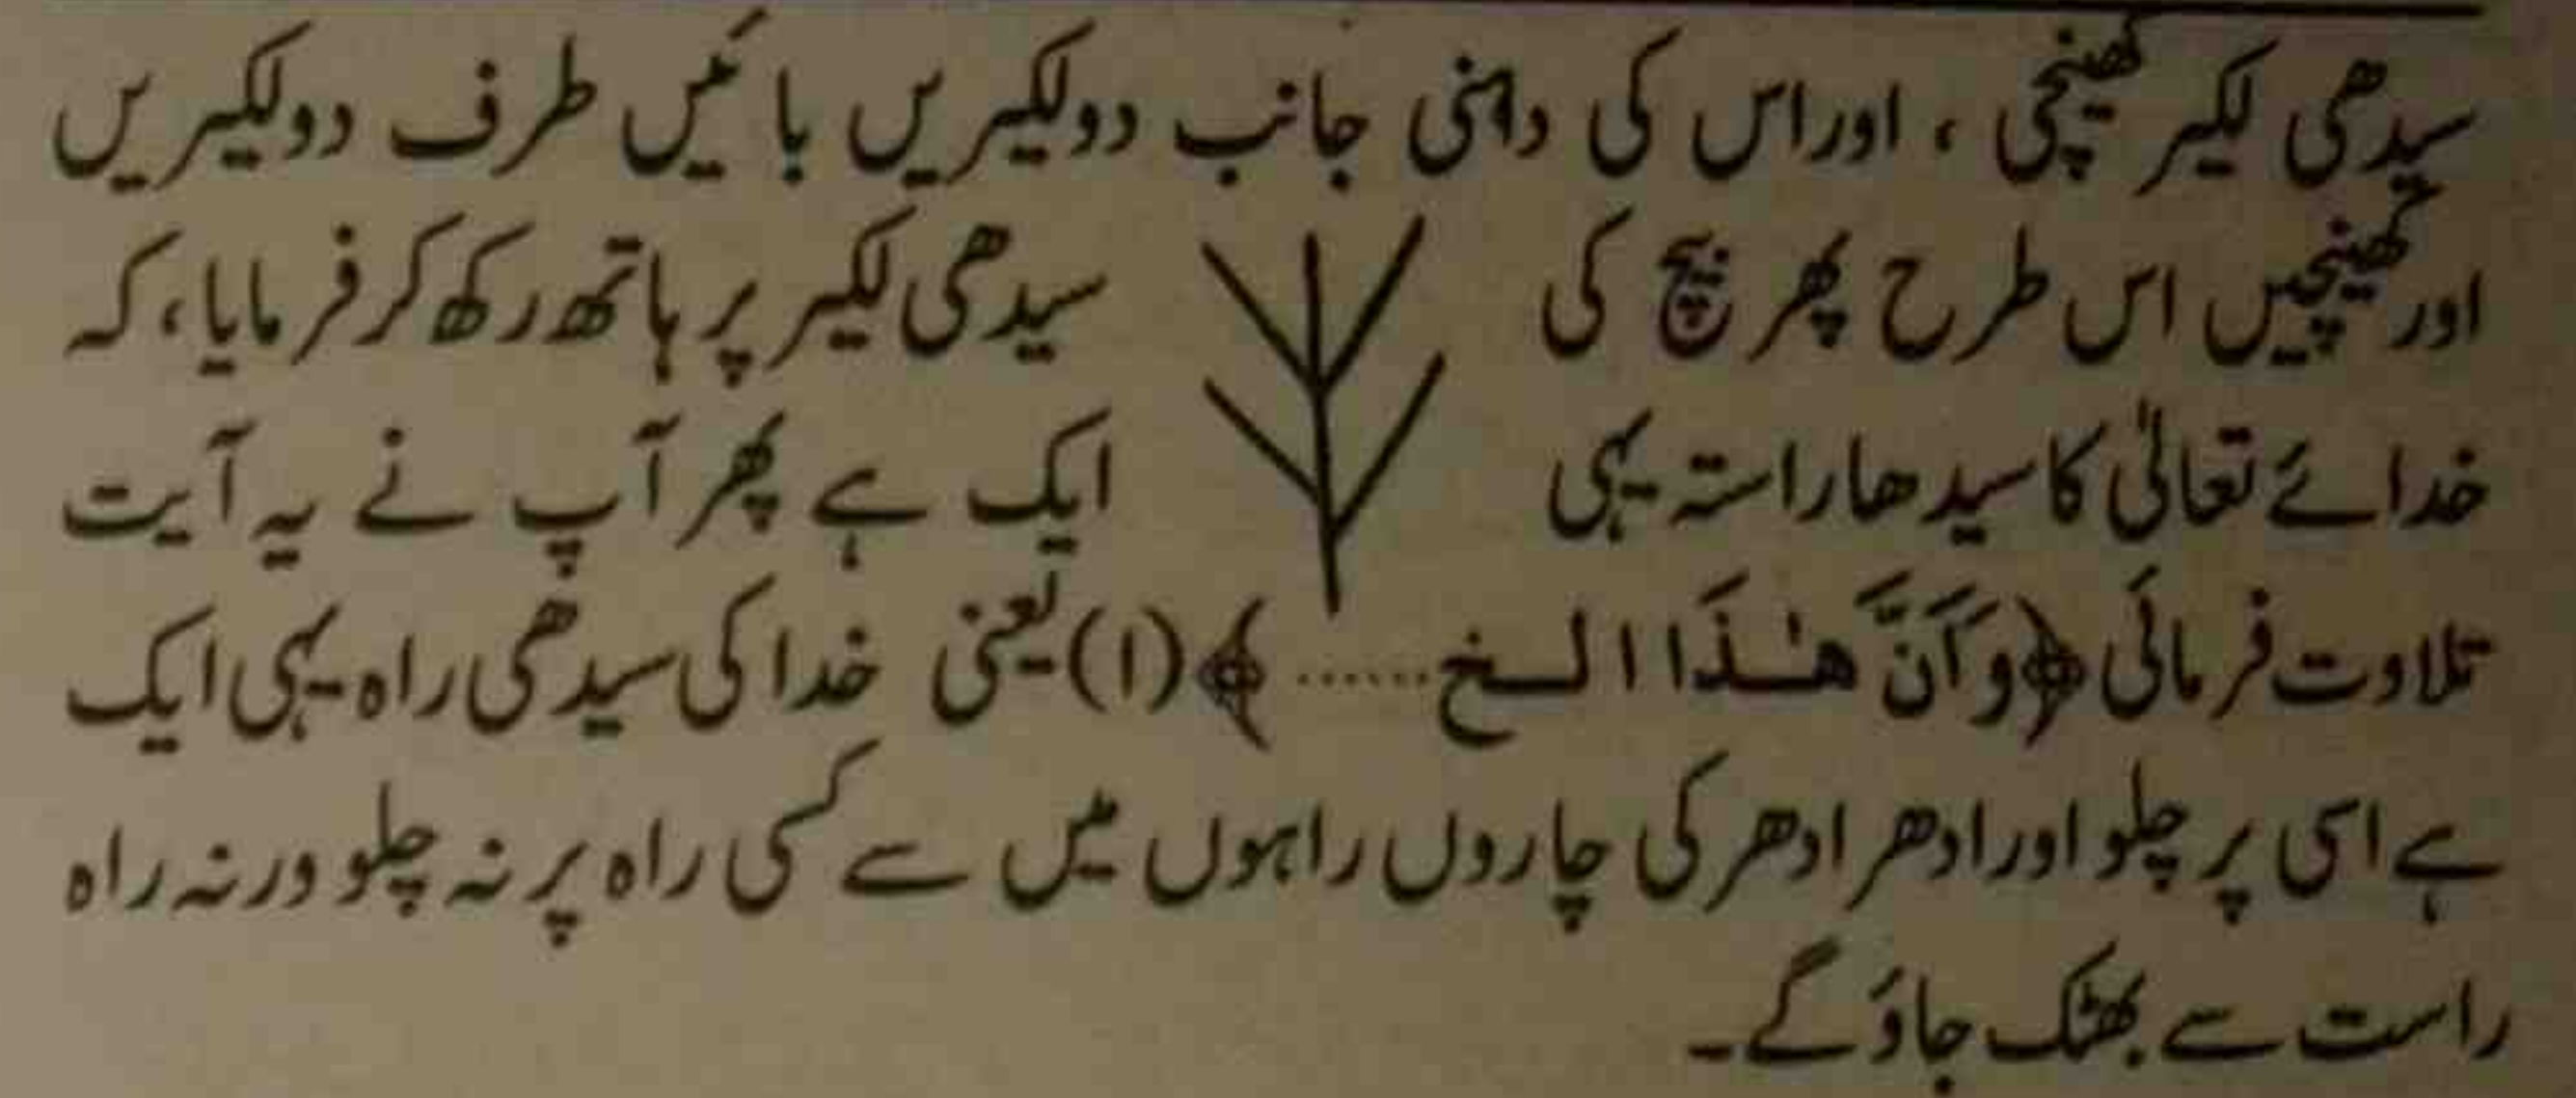 سیدھی لکیر کھینچی ، اور اس کی داہنی جانب دو لکیریں بائیں طرف دو لکیریں
اور کھینچیں اس طرح پھر بیچ کی سیدھی لکیر پر ہاتھ رکھ کر فرمایا، کہ
خدائے تعالیٰ کا سیدھا راستہ یہی ایک ہے پھر آپ نے یہ آیت
تلاوت فرمائی ﴿وَأَنَّ هٰذَا الخ ......﴾(۱) یعنی خدا کی سیدھی راہ یہی ایک
ہے اسی پر چلو اور ادھر ادھر کی چاروں راہوں میں سے کسی راہ پر نہ چلو ورنہ راہ
راست سے بھٹک جاؤ گے۔